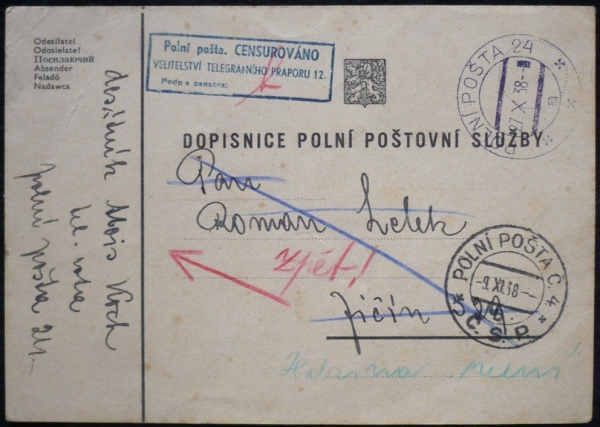 Odesílatel
Odosielateľ
Посилаючий
Absender
Feladó
Nadawca
desátník Alois Koch
polní pošta 24.-
Polní pošta. CENSUROVÁNO
VELITELSTVÍ TELEGRAFNÍHO PRAPORU 12.
Podpis censora:
POLNÍ POŠTA 24
27.X.38
a
DOPISNICE POLNÍ POŠTOVNÍ SLUŽBY
Pan
Roman Lelek
zpět!
Jičín
POLNÍ POŠTA Č. 4
-9.XI.38-
Č. S. P.
není